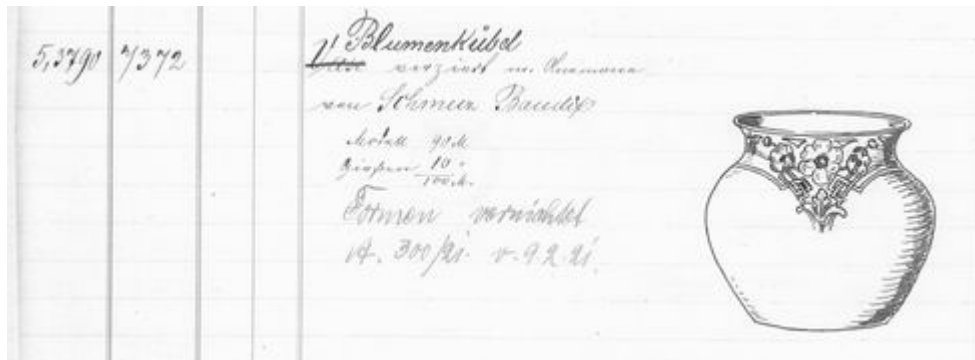 5,3790 7/372 1 Blumenkübel
Vase verziert m. Anemone
von Schmuz Baudiß
Modell 90 M
Gießen 10 "
100 M.
Formen vernichtet
A. 300/21. v. 9.2.21.